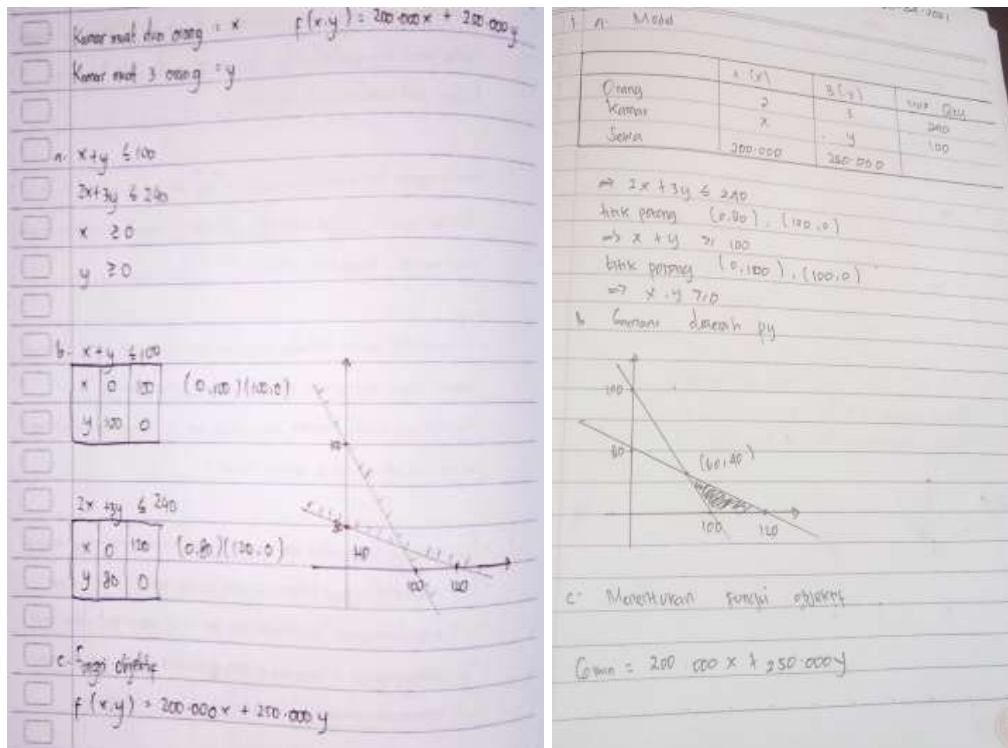 Kamar muat dua orang = x f(x.y) = 200.000x + 250.000y
Kamar muat 3 orang = y
a. x+y ≤ 100
2x+3y ≤ 240
x ≥0
y ≥0
b. x+y ≤ 100
x 0 100 (0,100)(100,0)
y 100 0
2x +3y ≤ 240
x 0 120 (0.80)(120.0)
y 80 0
HP
100 120
c. fungsi objektif
f(x.y) = 200.000x + 250.000y
1 a. Model
2 (x) 3 (y)
Orang 2 3 240
Kamar x y 100
Sewa 200.000 250.000
⇒ 2x + 3y ≤ 240
titik potong (0,80), (120,0)
⇒ x + y ≥ 100
titik potong (0,100), (100,0)
⇒ x,y ≥ 0
b Gambar daerah py
100
80
(60,40)
100 120
c. Menentukan fungsi objektif
Gmin = 200 000 x + 250.000y